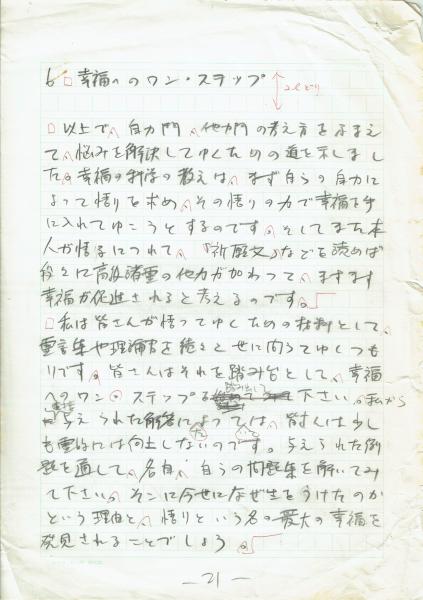 6 幸福へのワン・ステップ
2行どり
以上で、自力門、他力門の考え方をふまえ
て、悩みを解決してゆくための道を示しまし
た。幸福の科学の教えは、まず自らの自力に
よって悟りを求め、その悟りの力で幸福を手
に入れてゆこうとするのです。そしてまた本
人が悟るにつれて、『祈願文』などを読めば
段々に高級諸霊の他力が加わって、ますます
幸福が促進されると考えるのです。
私は皆さんが悟ってゆくための材料として、
霊言集や理論書を続々と世に問うてゆくつも
りです。皆さんはそれを踏み台として、幸福
へのワン・ステップを踏み出して下さい。私から
直接与えられた解答によっては、皆さんは少し
も霊的には向上しないのです。与えられた例
題を通して、各自、自らの問題集を解いてみ
て下さい。そこに今世になぜ生をうけたのか
という理由と、悟りという名の最大の幸福を
発見されることでしょう。
—21—